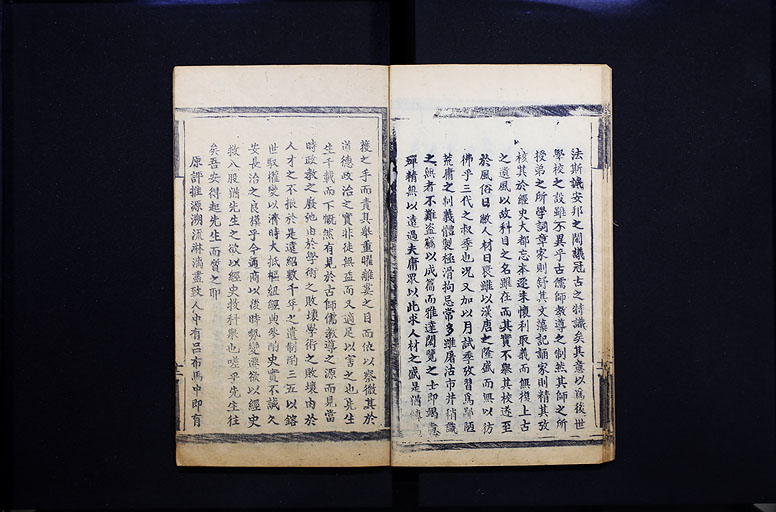 法斯誠安邦之閎議冠古之特識矣其意以為後世
學校之設雖不異乎古儒師教導之制然其師之所
授弟之所學詞章家則舒其文藻記誦家則精其攷
核其於經史大都忘本逐末懷利取義而無復上古
之遺風以故科目之名雖在而其實不舉其校迄至
於風俗日敝人材日衰雖以漢唐之隆盛而無以彷
彿乎三代之叔季也况又加以月試季攷習為鄙陋
荒庸之制義體製極滑拘忌常多雖屠沽市井稍識
之無者不難盜竊以成篇而雅達閎覽之士即竭
殫精無以遠過夫庸眾以此求人材之盛是猶
獲之手而責其舉重曚離婁之目而他以察微其於
道德政治之實非徒無益而又適足以害之也先生
生千載而下慨然有見於古師儒教導之源而見當
時政教之廢弛由於學術之敗壞學術之敗壞由於
人才之不振於是遠紹數千年之遺制酌三五以鎔
世取權變以濟時大抵樞紐經典參酌史實不誠久
安長治之良模乎今通商以後時勢變遷欲以經史
救八股猶先生之欲以經史救科舉也嗟乎先生往
矣吾安得起先生而質之耶
原評推源溯流淋漓盡致人中有呂布馬中即有